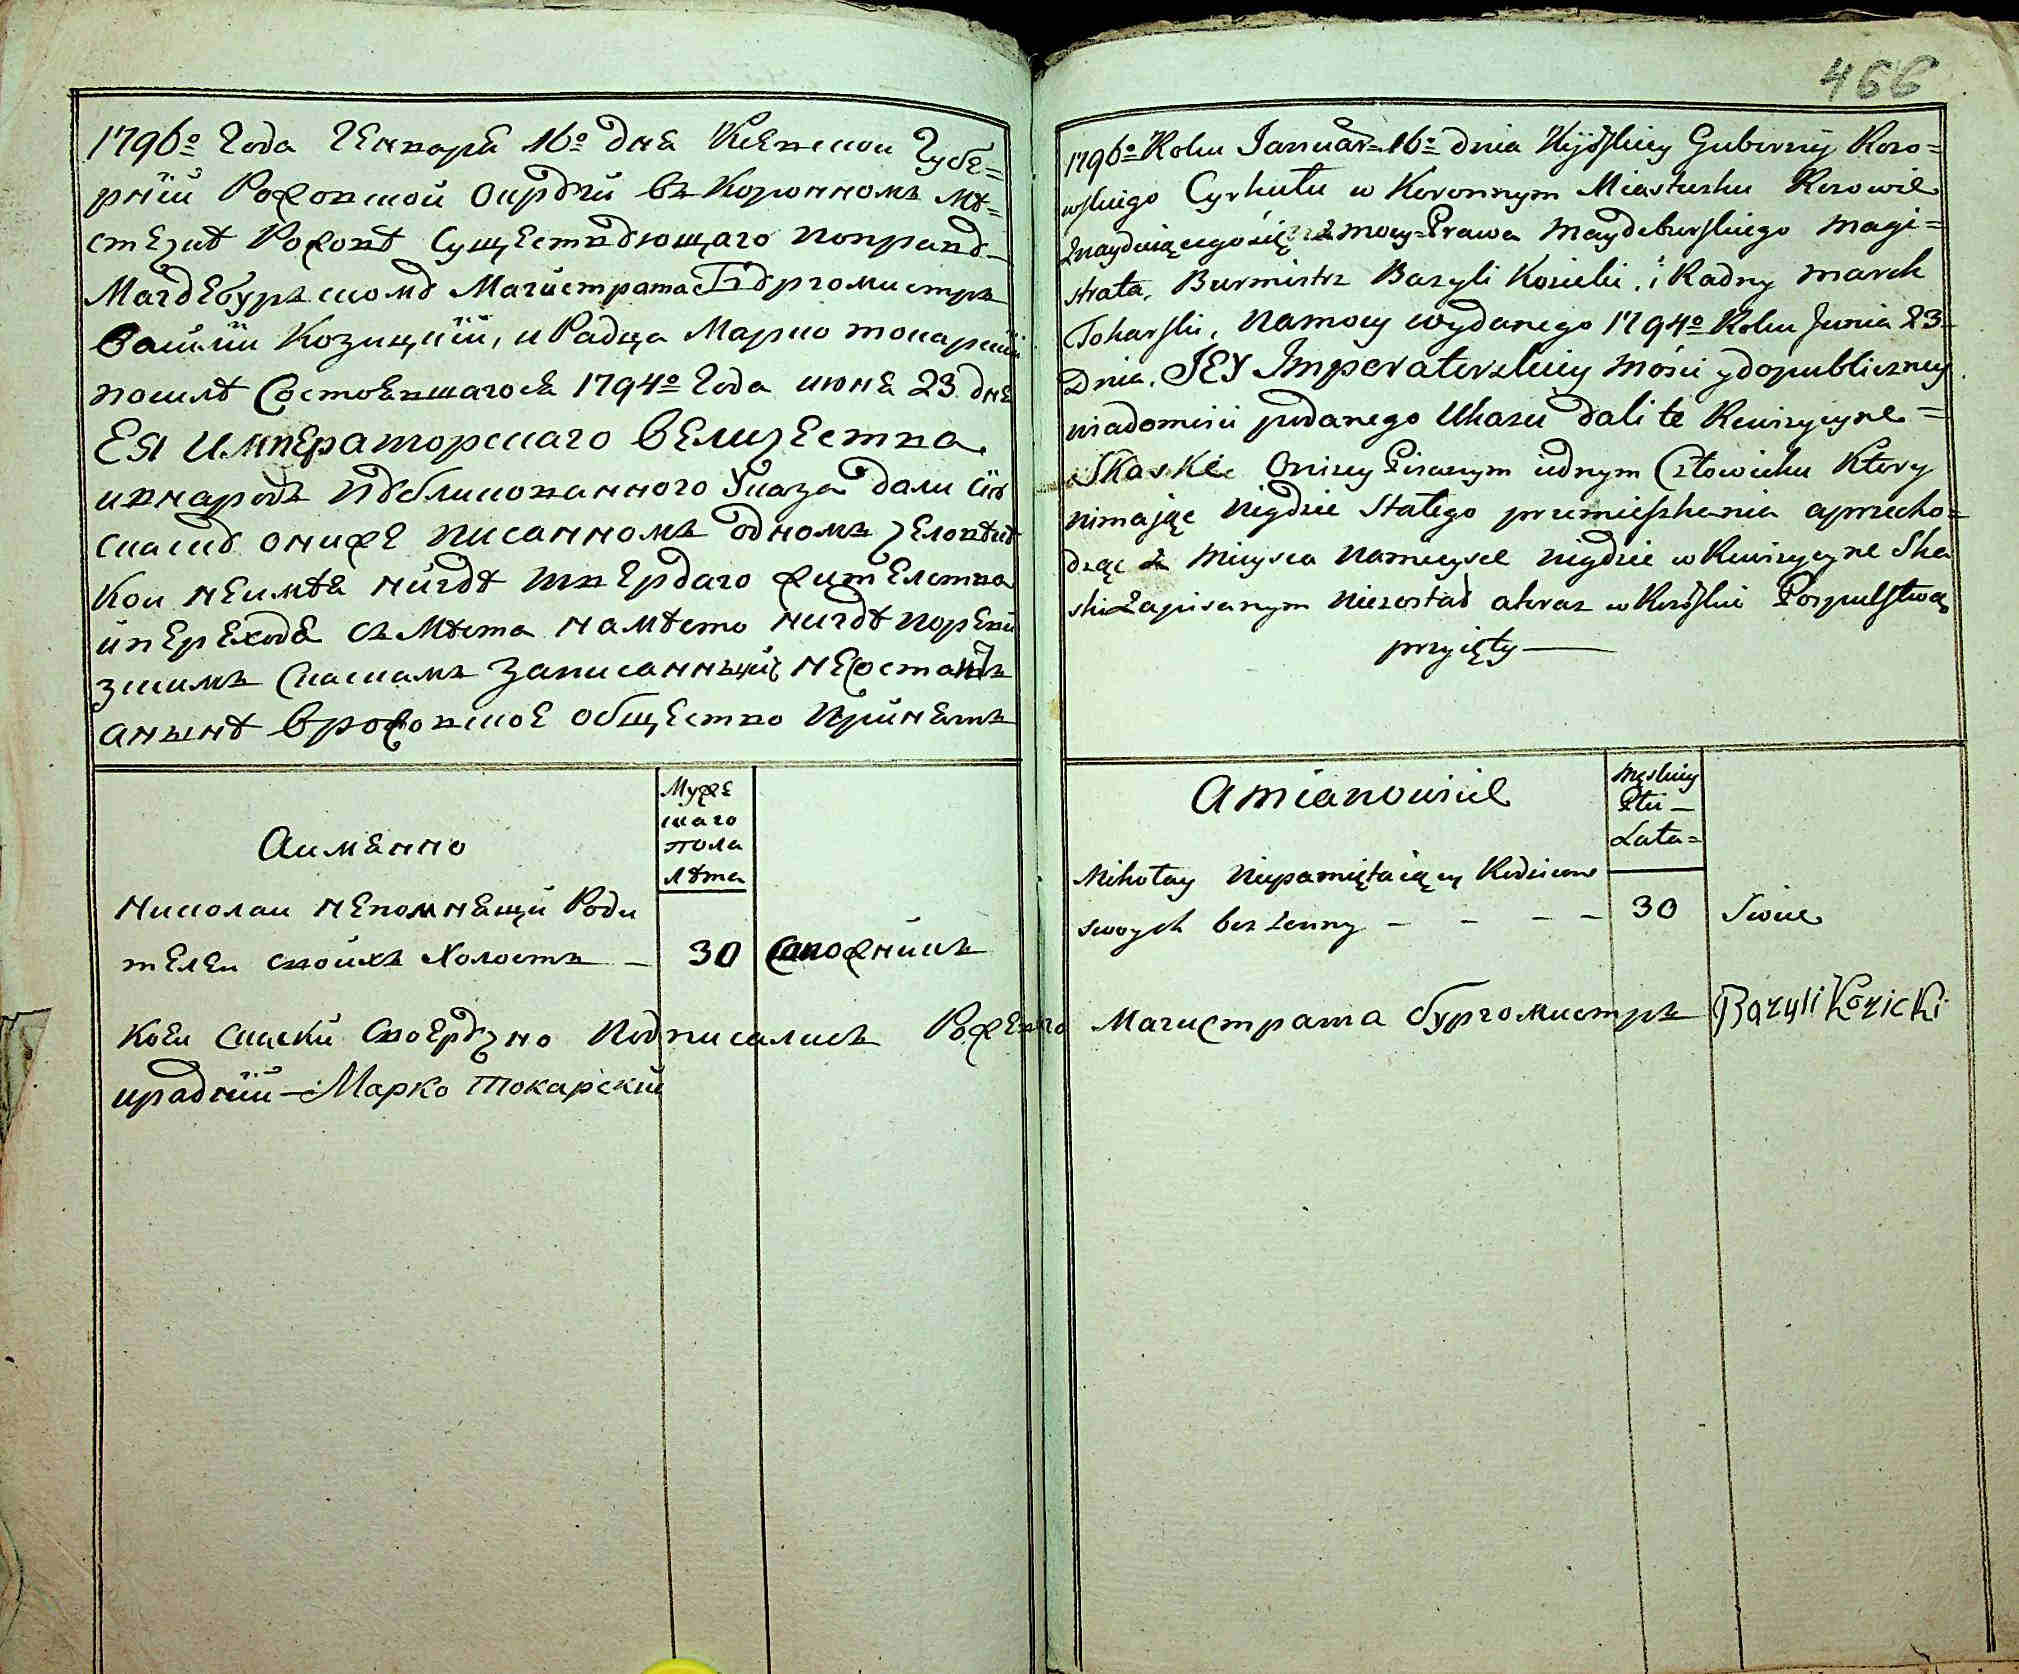 466
1796º Года Генваря 16º дня Киевской Губе=
рнїи Рожовской округи въ коронномъ мѣ=
стечкѣ Рожовѣ существующаго поправѣ
Магдебурскомѹ Магистрата Бѹргомистръ
Василїй Козицкїй, и Радца Марко токарскїй
посилѣ Состоявшагося 1794º Года июня 23 дня
ЕЯ Императорскаго величества
ивнародъ пѹбликованного Указа дали сїю
скаскѹ ониже писанномъ одномъ человѣкѣ
кои неимѣя нигдѣ твердаго жителства
ипереходя съ мѣста намѣсто нигдѣ поревї
зскимъ скаскамъ записанный неостался
анынѣ врожовское общество принятъ
Аимянно
Муже
скаго
пола
лѣта
Николаи непомнящи Роди
телеи своихъ холостъ — 30 Сапожникъ
Коеи скаски своерѹчно подписались Рожевского Магистрата бургомистръ Bazyli Kozicki
ирадний — Марко Токарский
1796º Roku Januar: 16º dnia Kijowskiey Guberniy Rozo=
wskiego Cyrkułu w Koronnym Miasteczku Rozowie
Znayduiącegosię z mocy Prawa Maydeburskiego Magi=
strata, Burmistrz Bazyli Kozicki, i Radny Marek
Tokarski, Namocy wydanego 1794º Roku Junia 23
Dnia, JEY Imperatorskiey Mości ydopubliczney
wiadomości podanego Ukazu dali te Rewizyyne =
Skaskie Oniżey Pisanym iednym Człowieku Ktory
nimaiąc Nigdzie Stałego przemieszkania aprzecho=
dząc z Mieysca Namieysce nigdzie w Rewizyyne Ska
ski Zapisanym Niezostał ateraz w Rozoskie Pospulstwo
przyięty —
Amianowicie
Męskiey
Płci —
Lata=
Mikołay Niepamiętaiący Rodzicow
swoych bez żenny — — — — 30 Swiec